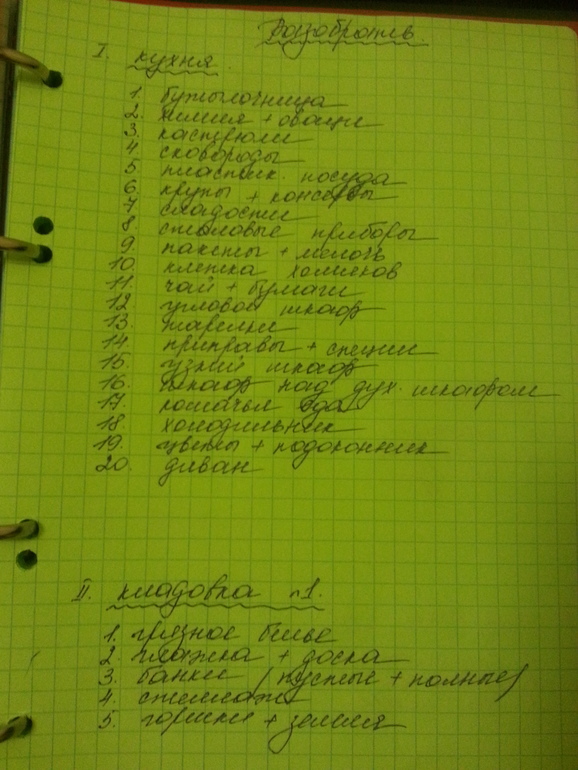 Разобрать.
I. кухня.
1. бутылочница
2. химия + овощи
3. кастрюли
4. сковороды
5. пластик. посуда
6. крупы + консервы
7. сладости
8. столовые приборы
9. пакеты + мелочь
10. клетка хомяков
11. чай + бумаги
12 угловой шкаф
13. тарелки
14. приправы + специи
15. узкий шкаф
16. шкаф над дух. шкафом
17 кошачья еда
18 холодильник
19. цветы + подоконник
20. диван
II. кладовка n1.
1. грязное белье
2 глажка + доска
3. банки (пустые + полные)
4. стеллаж
5. горшки + земля